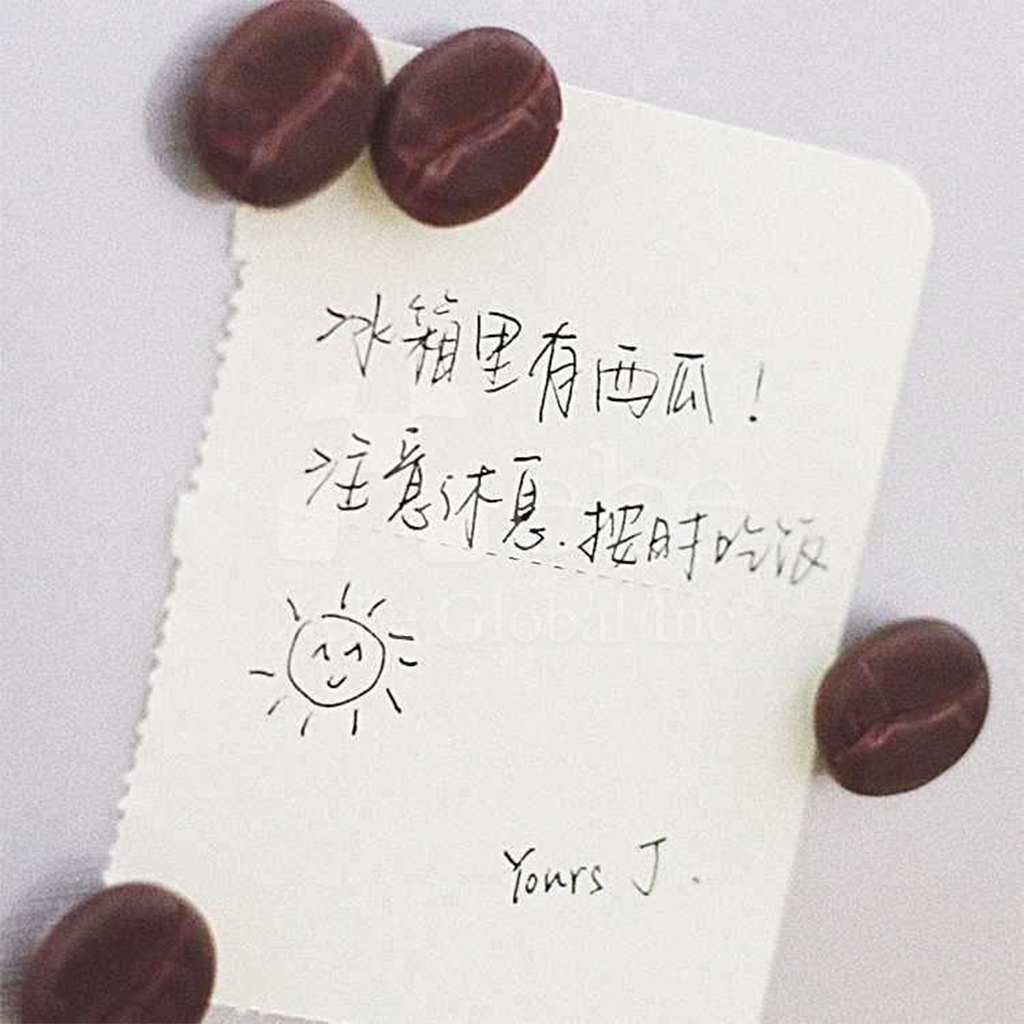 冰箱里有西瓜！
注意休息.按时吃饭
Global Inc
Yours J.